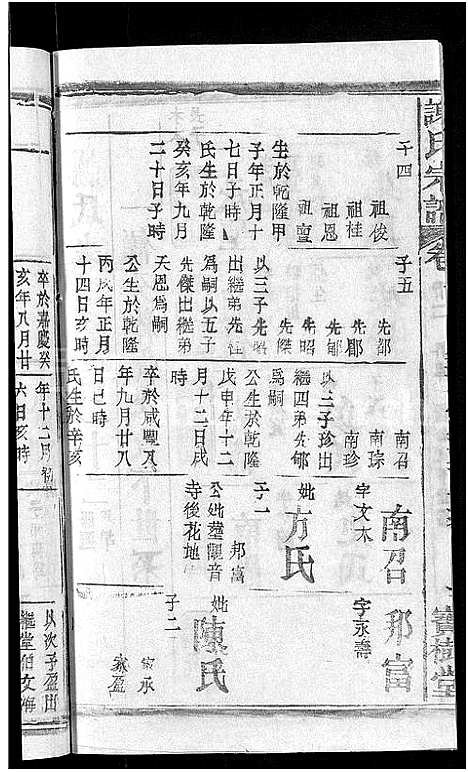 謝氏宗譜
卷
寶樹堂
子四
祖俊
祖桂
祖恩
祖㐭
生於乾隆甲
子年正月十
七日子時
氏生於乾隆
癸亥年九月
二十日子時
子五
先都
先郡
先郇
先傑
先昭
以三子先昭
出繼弟先
爲嗣以五子
先傑出繼弟
天恩爲嗣
公生於乾隆
丙戌年正月
十四日亥時
南召
南琮
南珍
以三子珍出
繼四弟先郇
爲嗣
公生於乾隆
戊申年十二
月十二日戌
時
卒於咸豐八
年九月廿八
日巳時
氏生於辛亥
南召
字文木
妣
方氏
子一
邦富
公妣塟觀音
寺後花地
邦富
字永壽
妣
陳氏
子二
家承
家盈
卒於嘉慶癸
亥年八月廿
年十二月
六日亥時
以次子盈出
繼堂伯文海